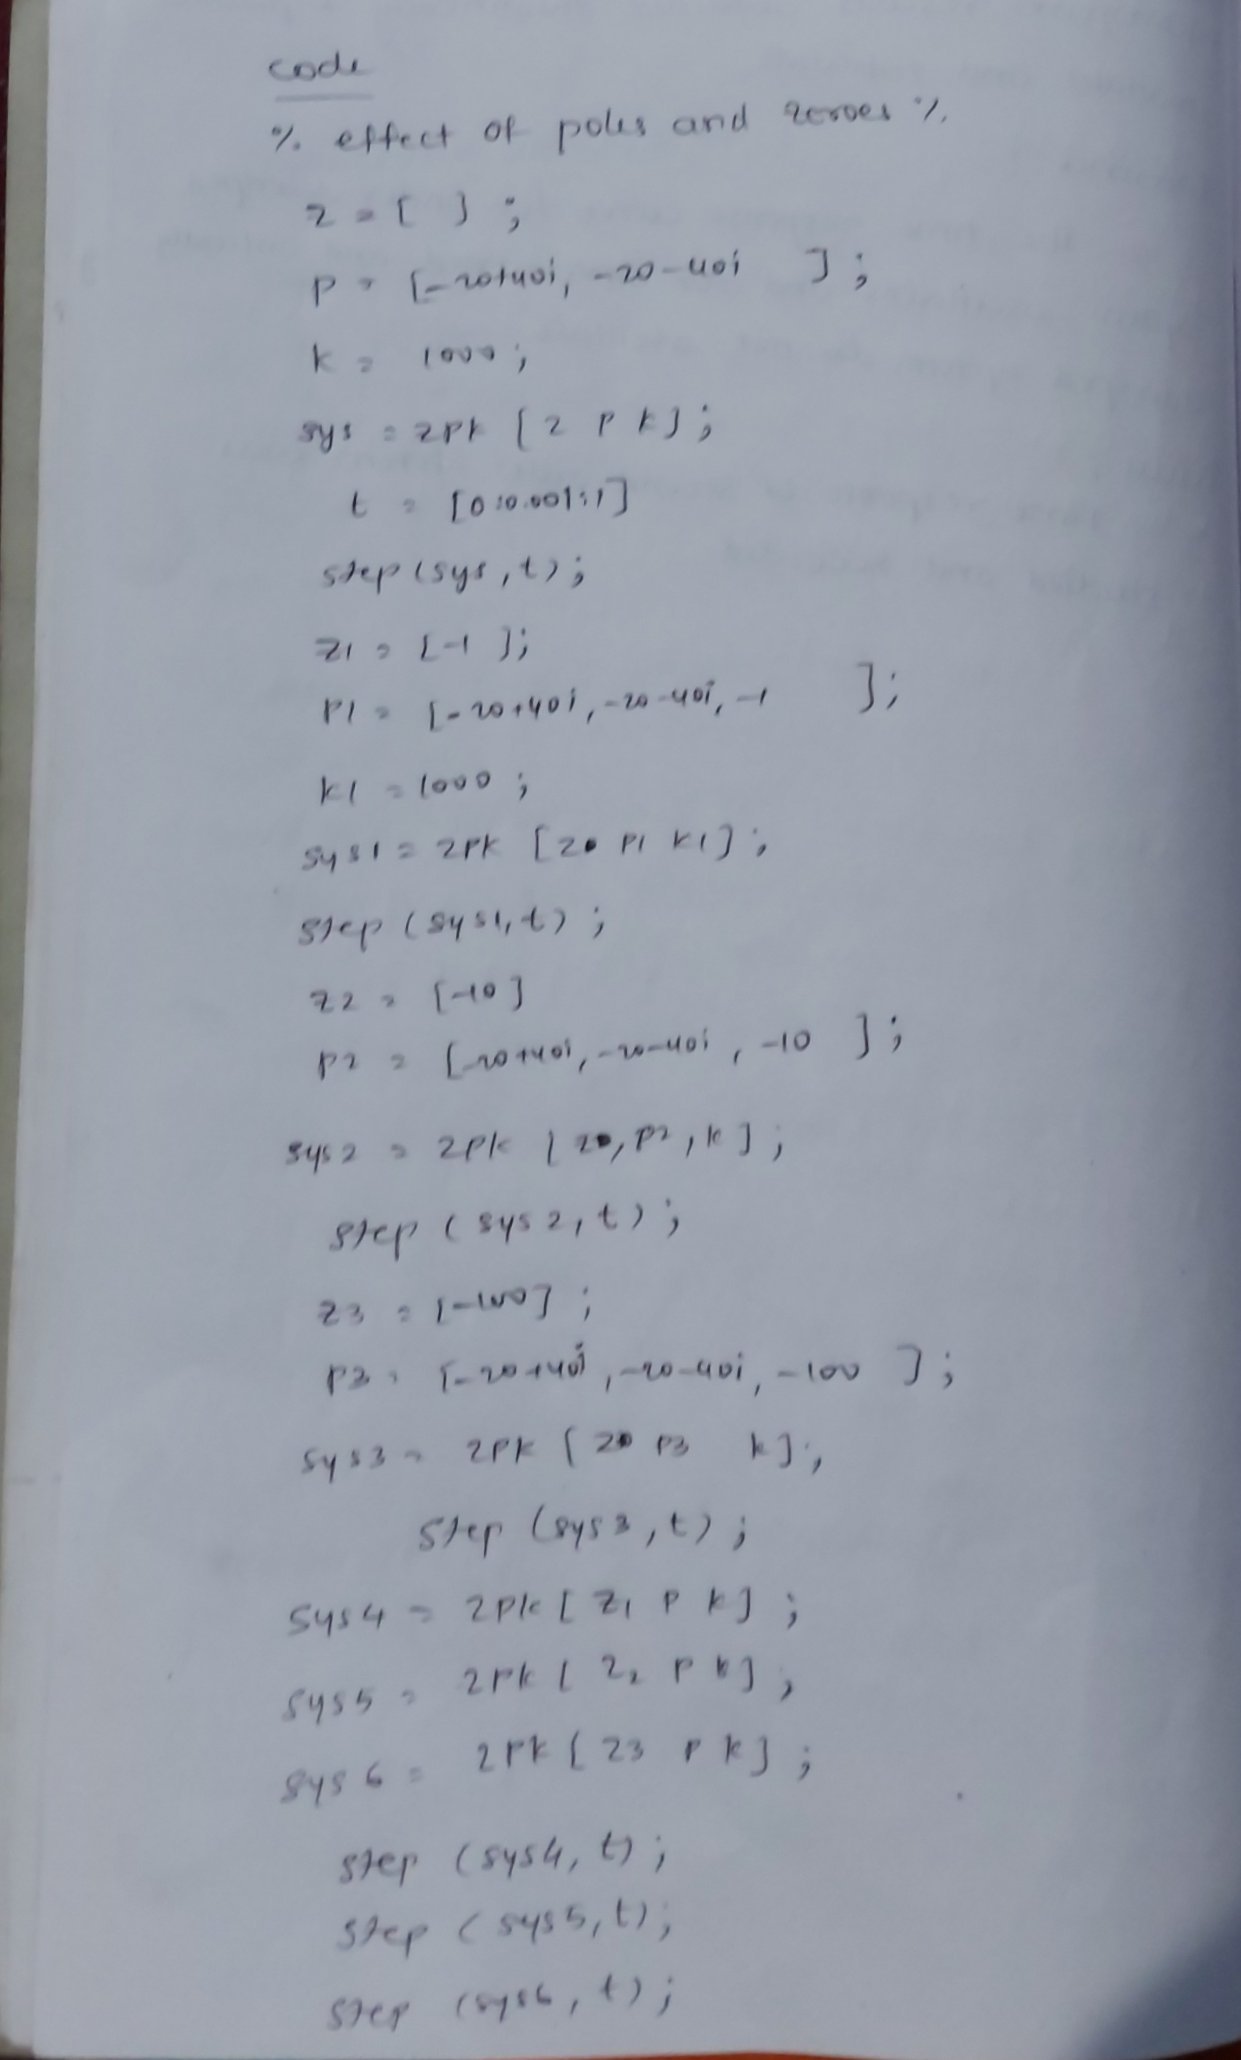 code
% effect of poles and zeroes %
z = [ ] ;
P = [-20+40i, -20-40i ] ;
k = 1000 ;
sys = zpk [ z P k ] ;
t = [0:0.001:1]
step (sys, t) ;
z1 = [-1 ] ;
P1 = [-20+40i, -20-40i, -1 ] ;
k1 = 1000 ;
sys1 = zpk [ z P1 k1 ] ;
step (sys1, t) ;
z2 = [-10]
P2 = [-20+40i, -20-40i, -10 ] ;
sys2 = zpk [ z, P2, k ] ;
step (sys2, t) ;
z3 = [-100] ;
P3 = [-20+40i, -20-40i, -100 ] ;
sys3 = zpk [ z P3 k ] ;
step (sys3, t) ;
sys4 = zpk [ z1 P k ] ;
sys5 = zpk [ z2 P k ] ;
sys6 = zpk [ z3 P k ] ;
step (sys4, t) ;
step (sys5, t) ;
step (sys6, t) ;